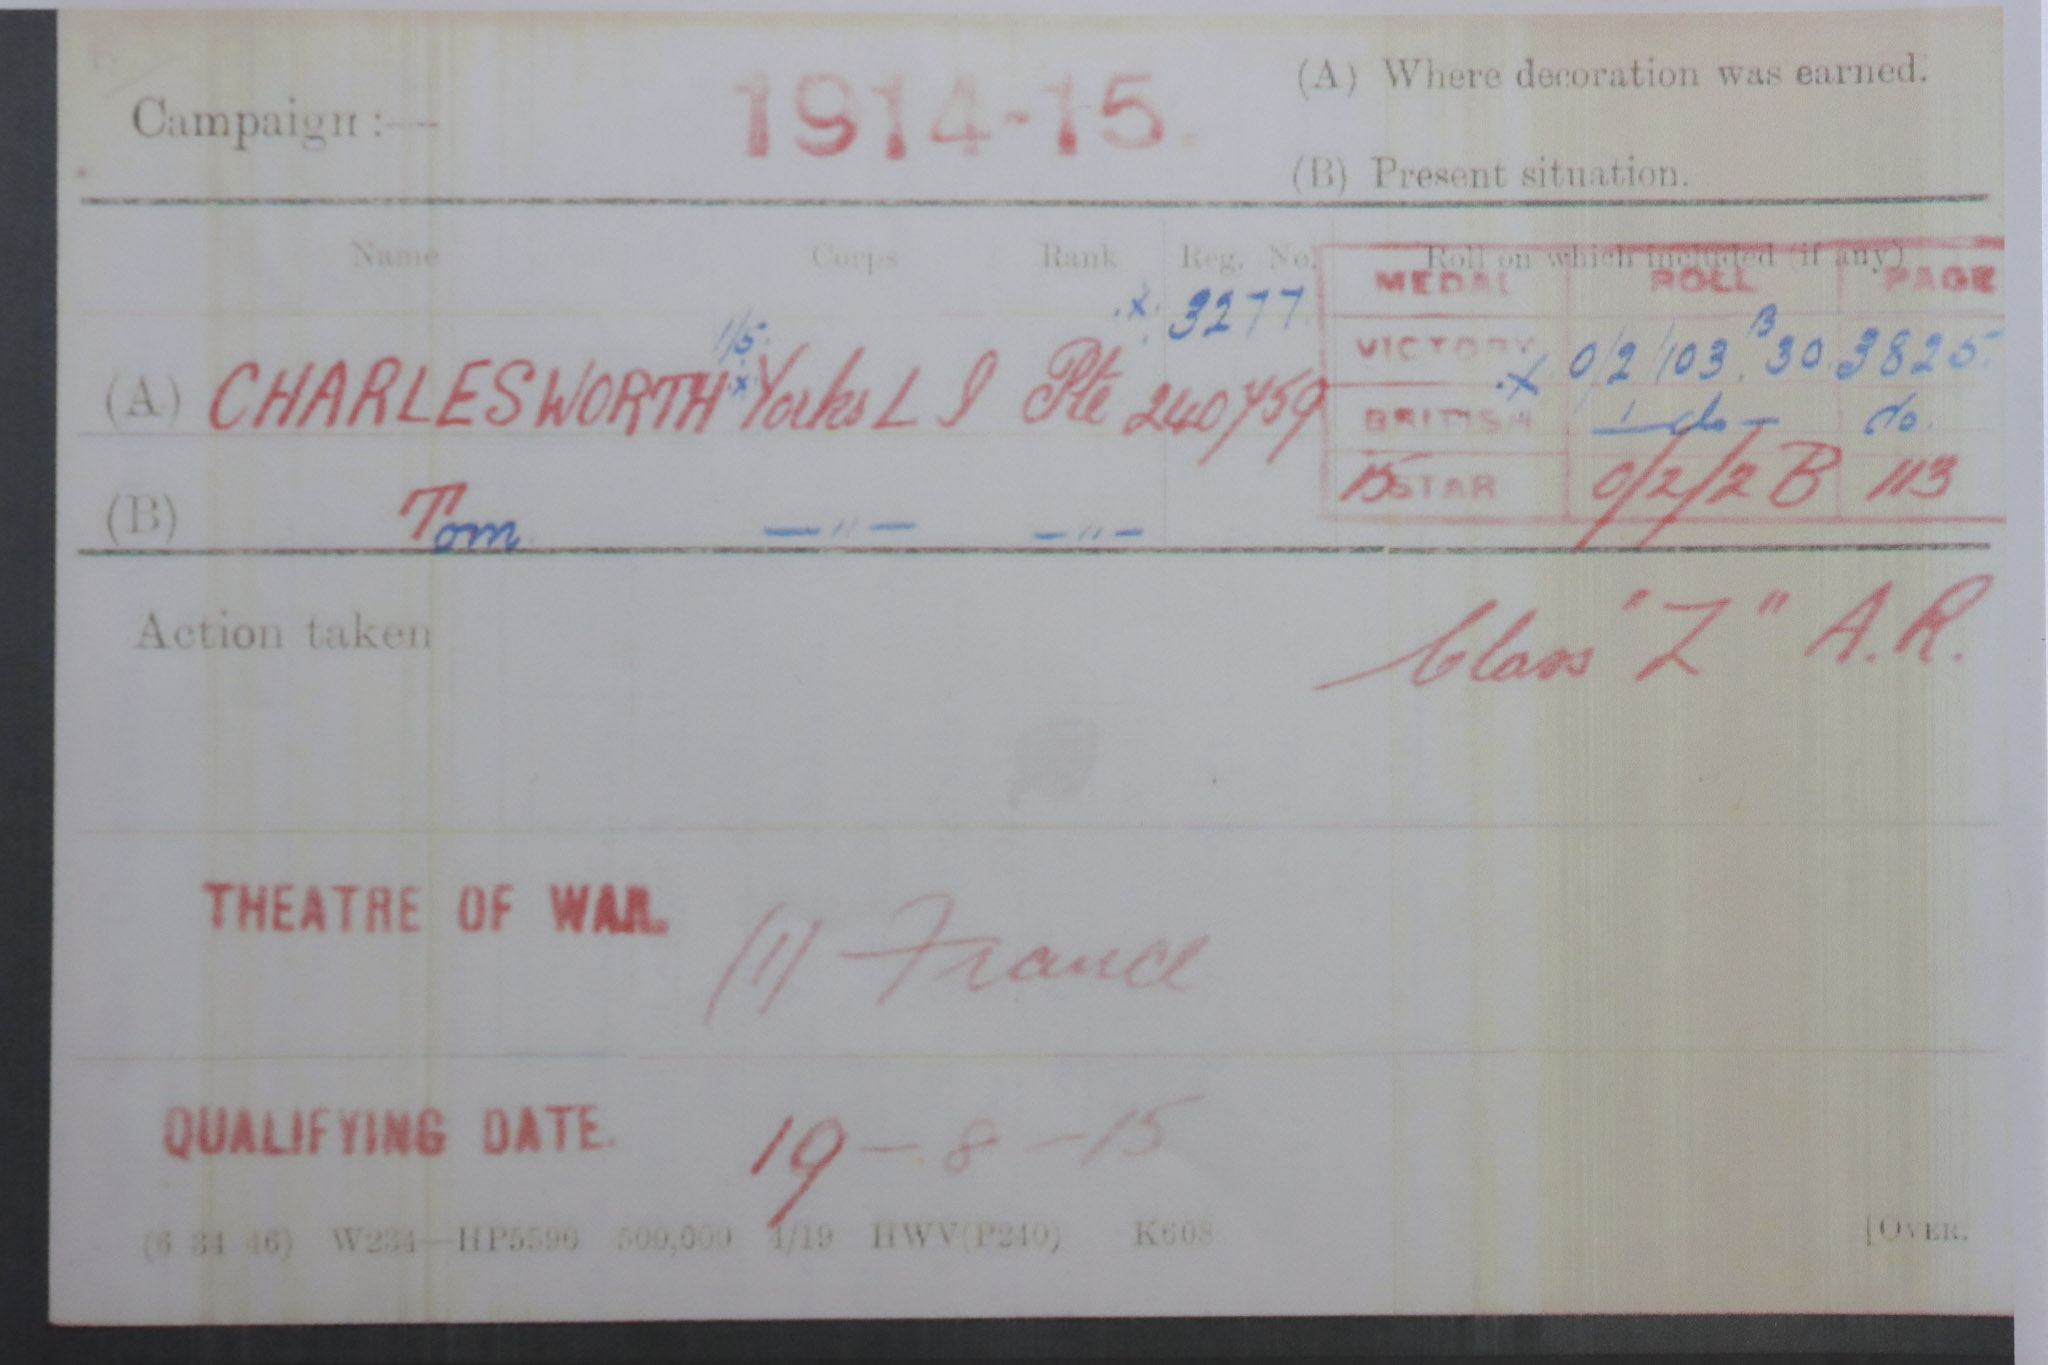 Campaign :— 1914-15. (A) Where decoration was earned.
(B) Present situation.
Name Corps Rank Reg. No. Roll on which included (if any)
MEDAL ROLL PAGE
x 3277
1/5
VICTORY x 0/2/103 B 30. 3825
(A) CHARLESWORTH x Yorks L I Pte 240759
BRITISH — do — do.
(B) Tom — " — — " —
15 STAR 0/2/2 B 113
Action taken Class "Z" A.R.
THEATRE OF WAR. (1) France
QUALIFYING DATE. 19 - 8 - 15
(6 34 46) W234—HP5590 500,000 4/19 HWV(P240) K608 [OVER.